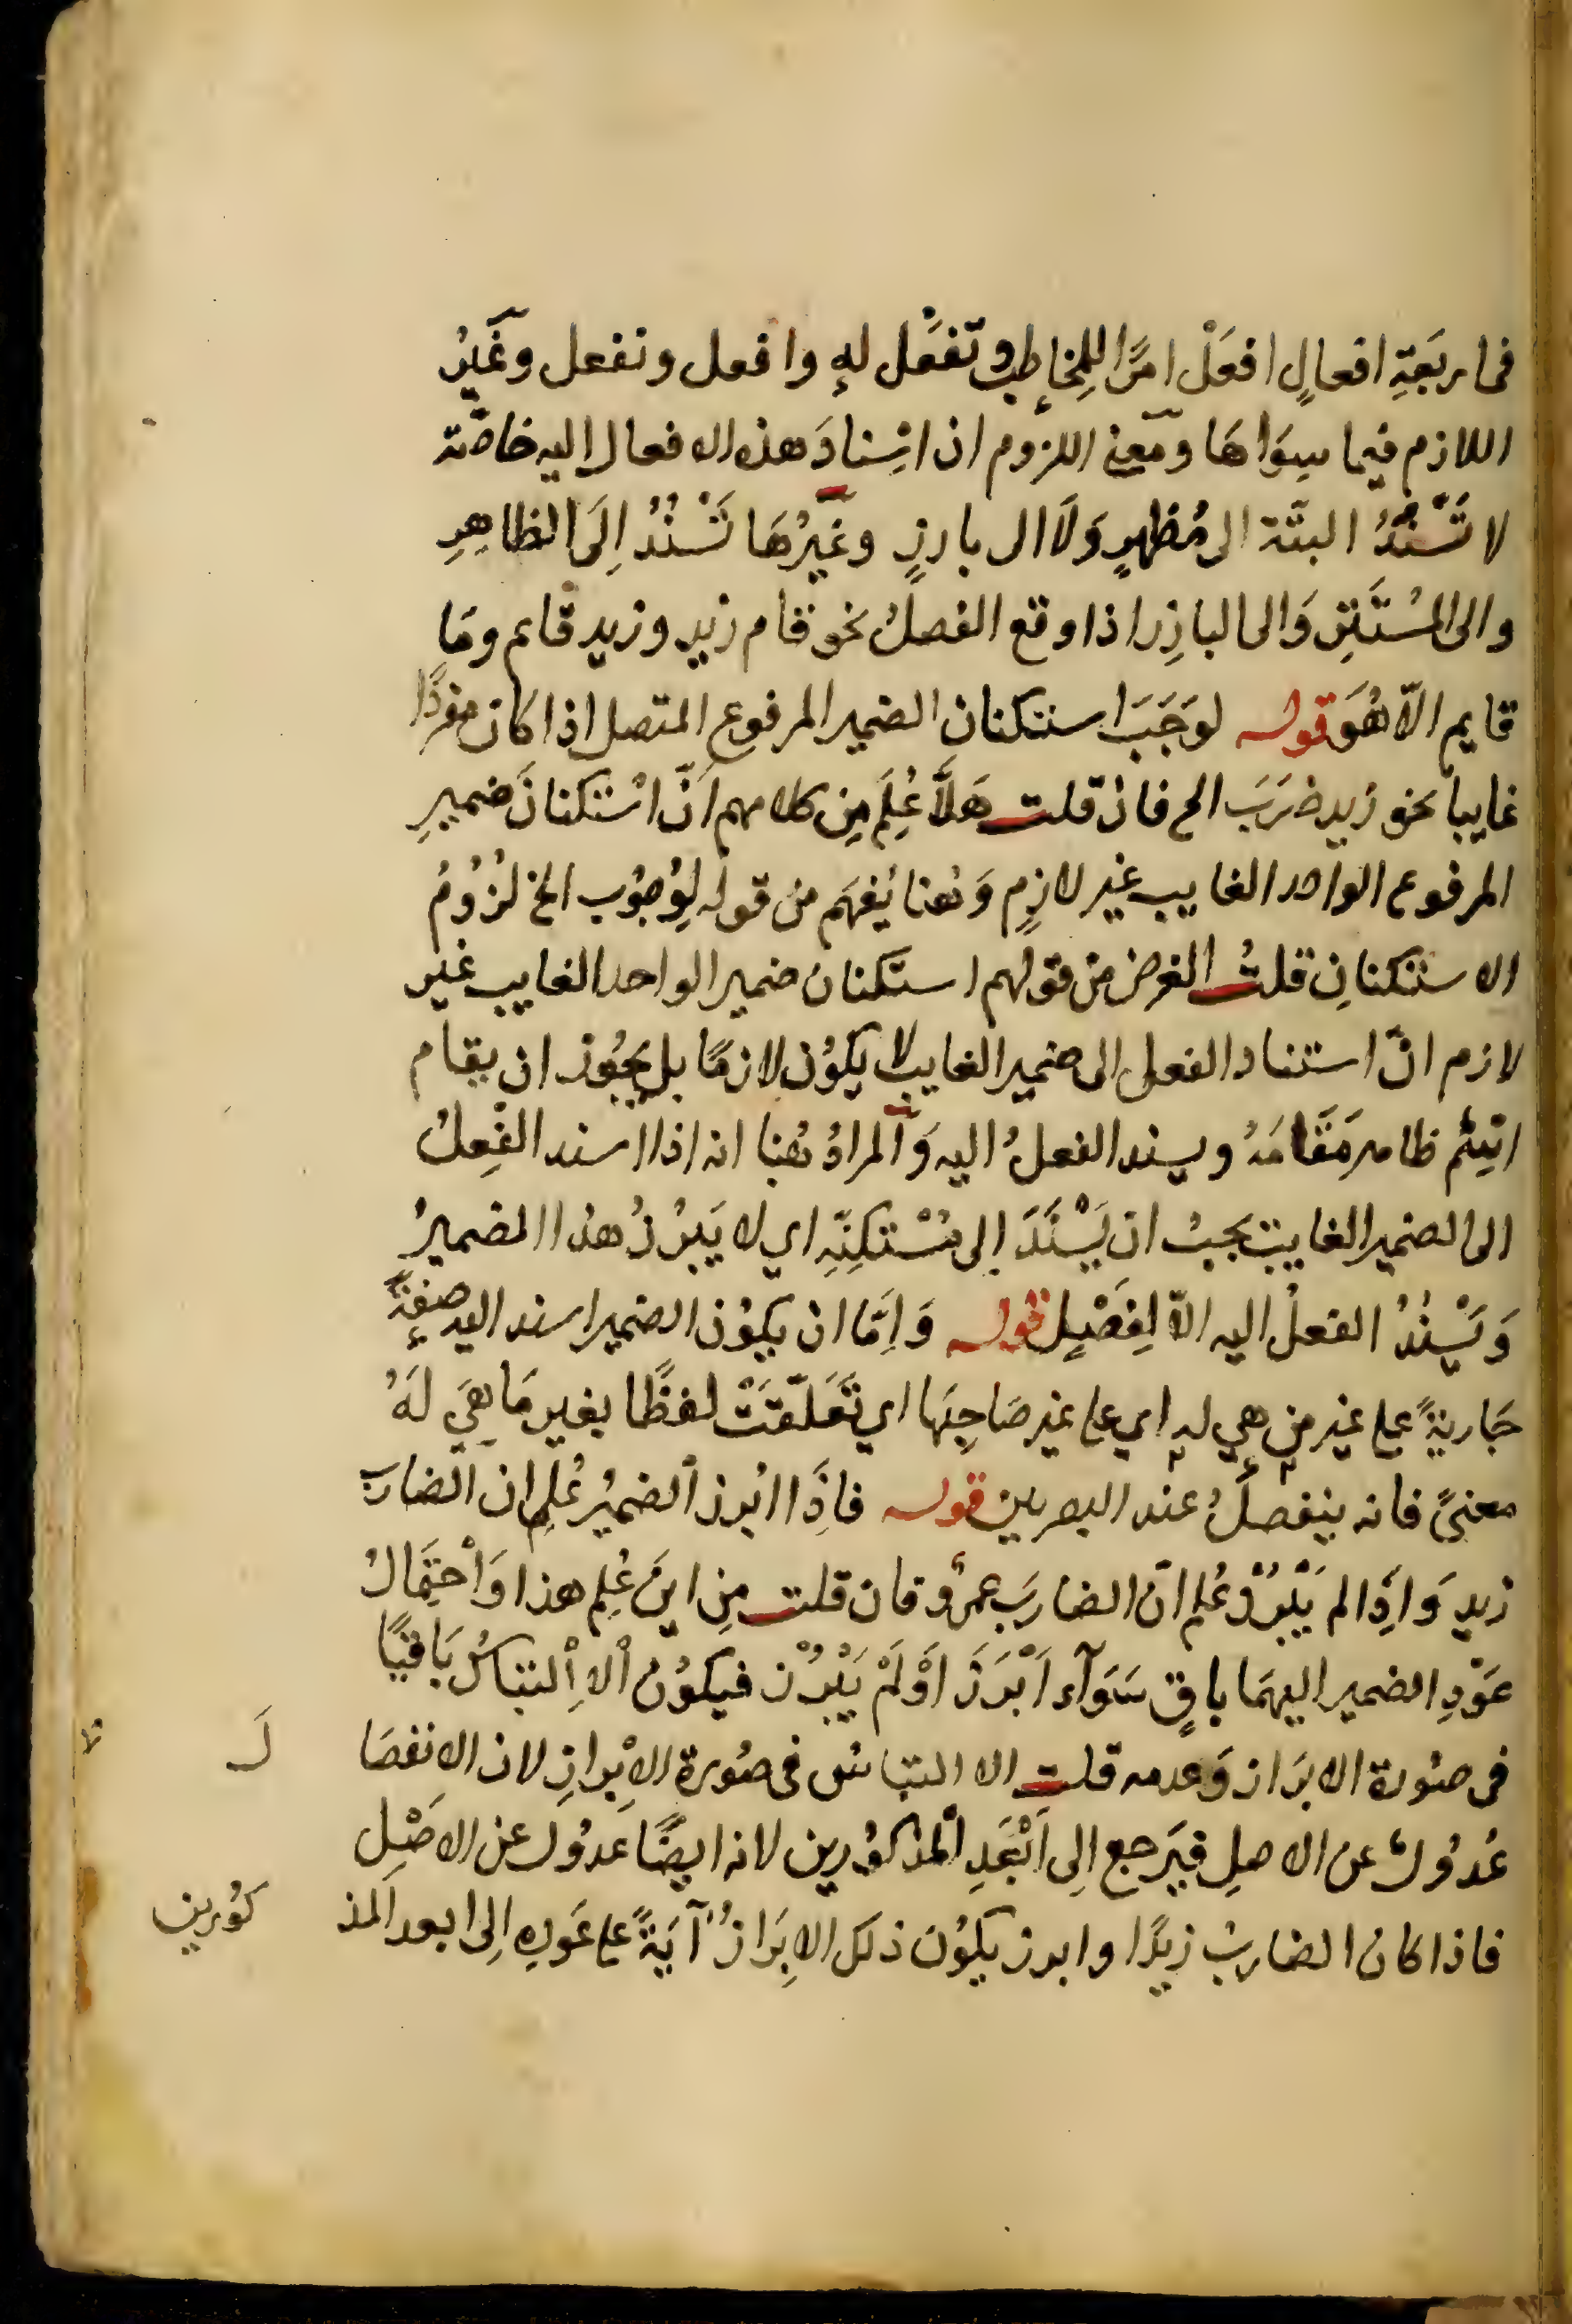 فى اربَعَةِ افعالٍ افعَلْ امرًا للمخاطِبِ وتَفعَل لهِ وافعل ونفعل وغَيرُ
اللازم فيما سِوَاهَا ومَعنى اللزوم ان اِسْنادَ هذه الافعال اليه خاصّة
لا تَسْنُدُ البتّة الى مُظهرٍ وَلَا الى بارزٍ وغيرُهَا تَسْنُدُ اِلَى الظاهِرِ
والى المُسْتَتِرِ وَالى البازِر اذا وقع الفصلُ نحو قام زيد وزيد قام ومَا
قايم الّا هُوَ قوله لوَجَبَ استكنانِ الضمير المرفوعِ المتصل اذا كان مفردًا
غايبا نحو زيد ضَرَبَ الخ فان قلت هَلَّا عُلِمَ مِن كلامهم اَنَّ اسْتكنانَ ضميرِ
المرفوع الواحد الغايب غير لازمٍ وَهُنا يُفهَم من قوله لِوُجُوب الخ لُزُومُ
الاستكنانِ قلتُ الغرض من قولهم استكنان ضمير الواحد الغايب غير
لازم انّ استناد الفعل الى ضمير الغايب لا يكوُن لازمًا بل يجُوز ان يقام
اسْم ظاهر مَقَامَهُ ويسند الفعلُ اليه وَالمرادُ هُنا انه اذا اسند الفِعلُ
الى الضمير الغايب يجبُ ان يَسْنَدَ اِلى مُسْتكِنِّهِ اي لا يَبرُزُ هذا المضميرُ
وَيَسْنُدُ الفعلُ اليه الّا لِفَصْلٍ قوله وَاِمَّا ان يكوُن الضمير اسند اليه صفةً
جَاريةً على غير من هي له اي على غير صَاحِبِها اي تَعَلّقَتْ لفظًا بغير مَا هِيَ لَهُ
معنىً فانه ينفصلُ عند البصريين قوله فاِذَا ابُرز الضميُر عُلِم ان الضارب
زيد وَاِذَا لم يَبْرُزْ عُلم انّ الضاربَ عمرٌو فان قلت مِن اينَ عُلِم هذا وَاحْتِمَالُ
عَوْدِ الضمير اليهمَا باقٍ سَوَآء اَبْرَزَ اَوْ لَمْ يَبْرُزْ فيكوُن الاِلتباسُ بَاقيًا
فى صُورة الابرَاز وَعدمه قلت الا التباسُ فى صُورة الاِبرازِ لان الانفصَا لَ
عُدُولٌ عن الاصلِ فيَرجع اِلى اَبْعَدِ المذكوُرين لانه ايضًا عدُول عن الاصْلِ
فاذا كان الضاربُ زيدًا وابرز يكوُن ذلك الاِبَرازُ آيَةً على عَودِهِ اِلى ابعد المذ كوُرين